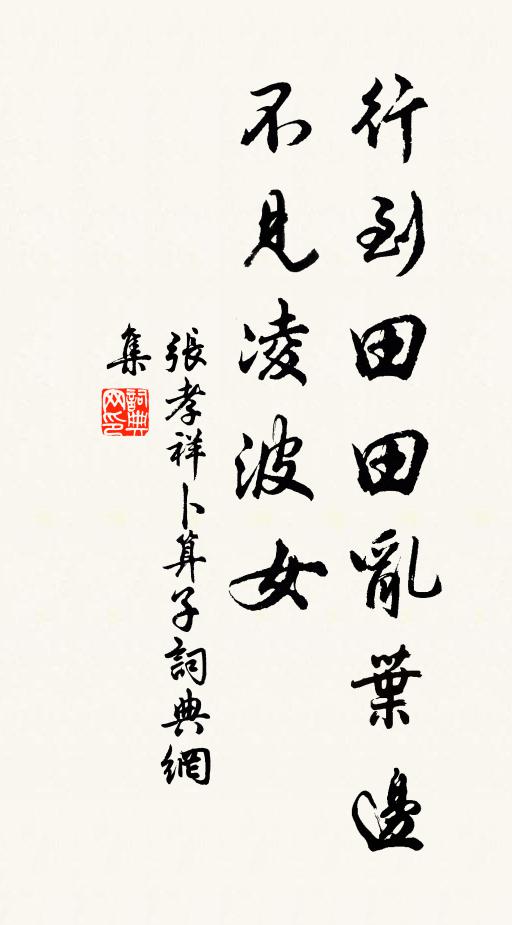 行到田田亂葉邊
不見凌波女
張孝祥卜算子詞典網
集
詞典网印